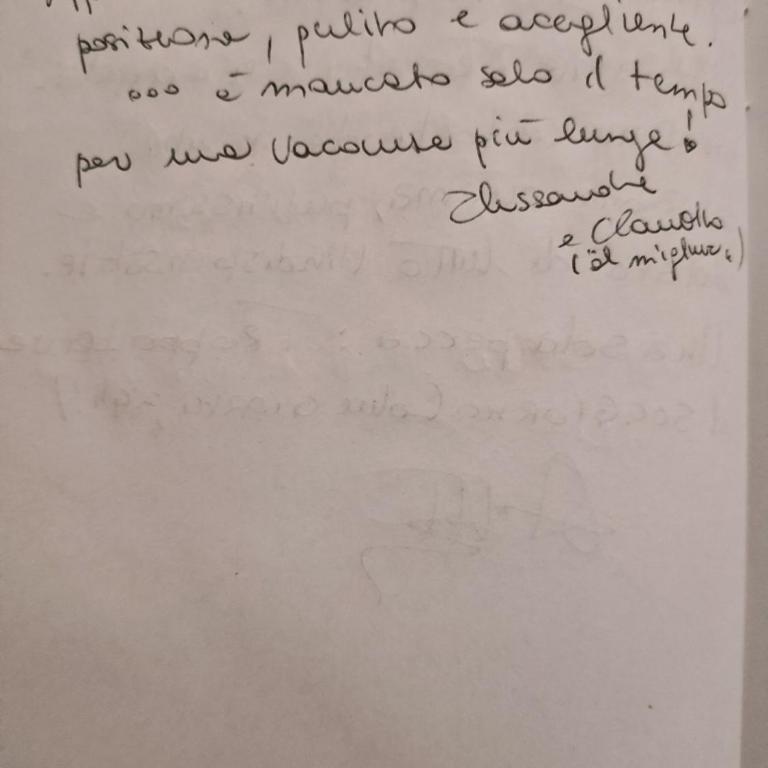 posizione, pulito e accogliente.
... è mancato solo il tempo
per una vacanza più lunga!
Alessandra
e Claudio
(il migliore)